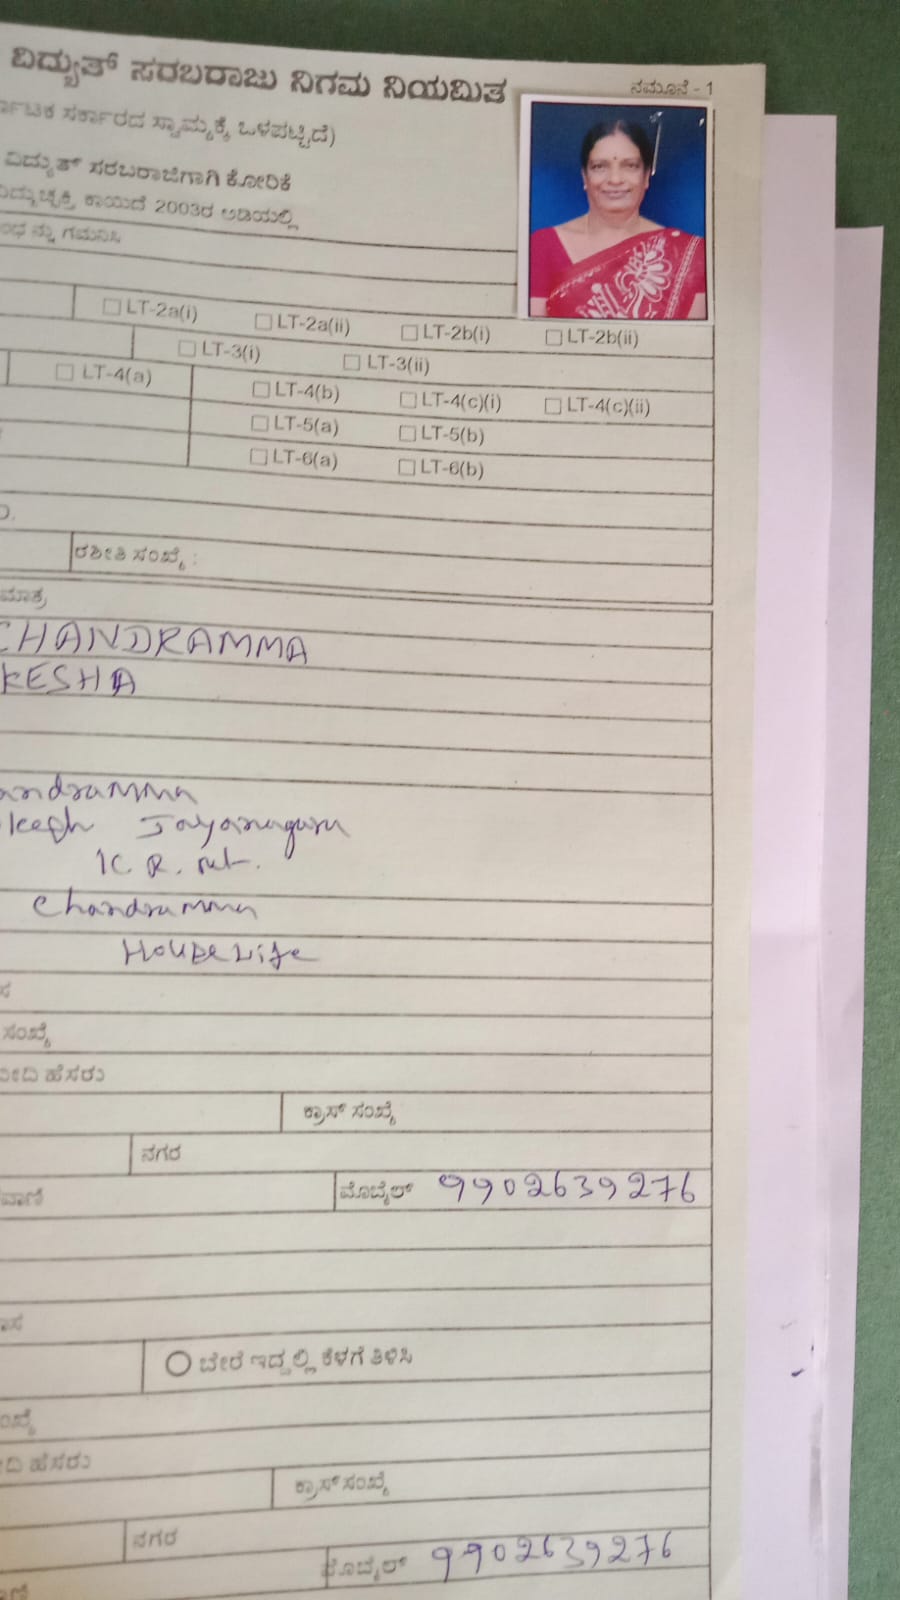 ವಿದ್ಯುತ್ ಸರಬರಾಜು ನಿಗಮ ನಿಯಮಿತ
ನಮೂನೆ - 1
ಸರ್ಕಾರದ ಸ್ವಾಮ್ಯಕ್ಕೆ ಒಳಪಟ್ಟಿದೆ)
ವಿದ್ಯುತ್ ಸರಬರಾಜಿಗಾಗಿ ಕೋರಿಕೆ
ಕಾಯಿದೆ 2003ರ ಅಡಿಯಲ್ಲಿ
ಗಮನಿಸಿ
LT-2a(i) LT-2a(ii) LT-2b(i) LT-2b(ii)
LT-3(i) LT-3(ii)
LT-4(a) LT-4(b) LT-4(c)(i) LT-4(c)(ii)
LT-5(a) LT-5(b)
LT-6(a) LT-6(b)
ರಶೀತಿ ಸಂಖ್ಯೆ :
ಮಾತ್ರ
CHANDRAMMA
KESHA
K. R. 
Chandramma
House Wife
ಸಂಖ್ಯೆ
ಹೆಸರು
ಕ್ರಾಸ್ ಸಂಖ್ಯೆ
ನಗರ
ಮೊಬೈಲ್ 9902639276
ಬೇರೆ ಇದ್ದಲ್ಲಿ ಕೆಳಗೆ ತಿಳಿಸಿ
ಹೆಸರು
ಕ್ರಾಸ್ ಸಂಖ್ಯೆ
ನಗರ
ಮೊಬೈಲ್ 9902639276